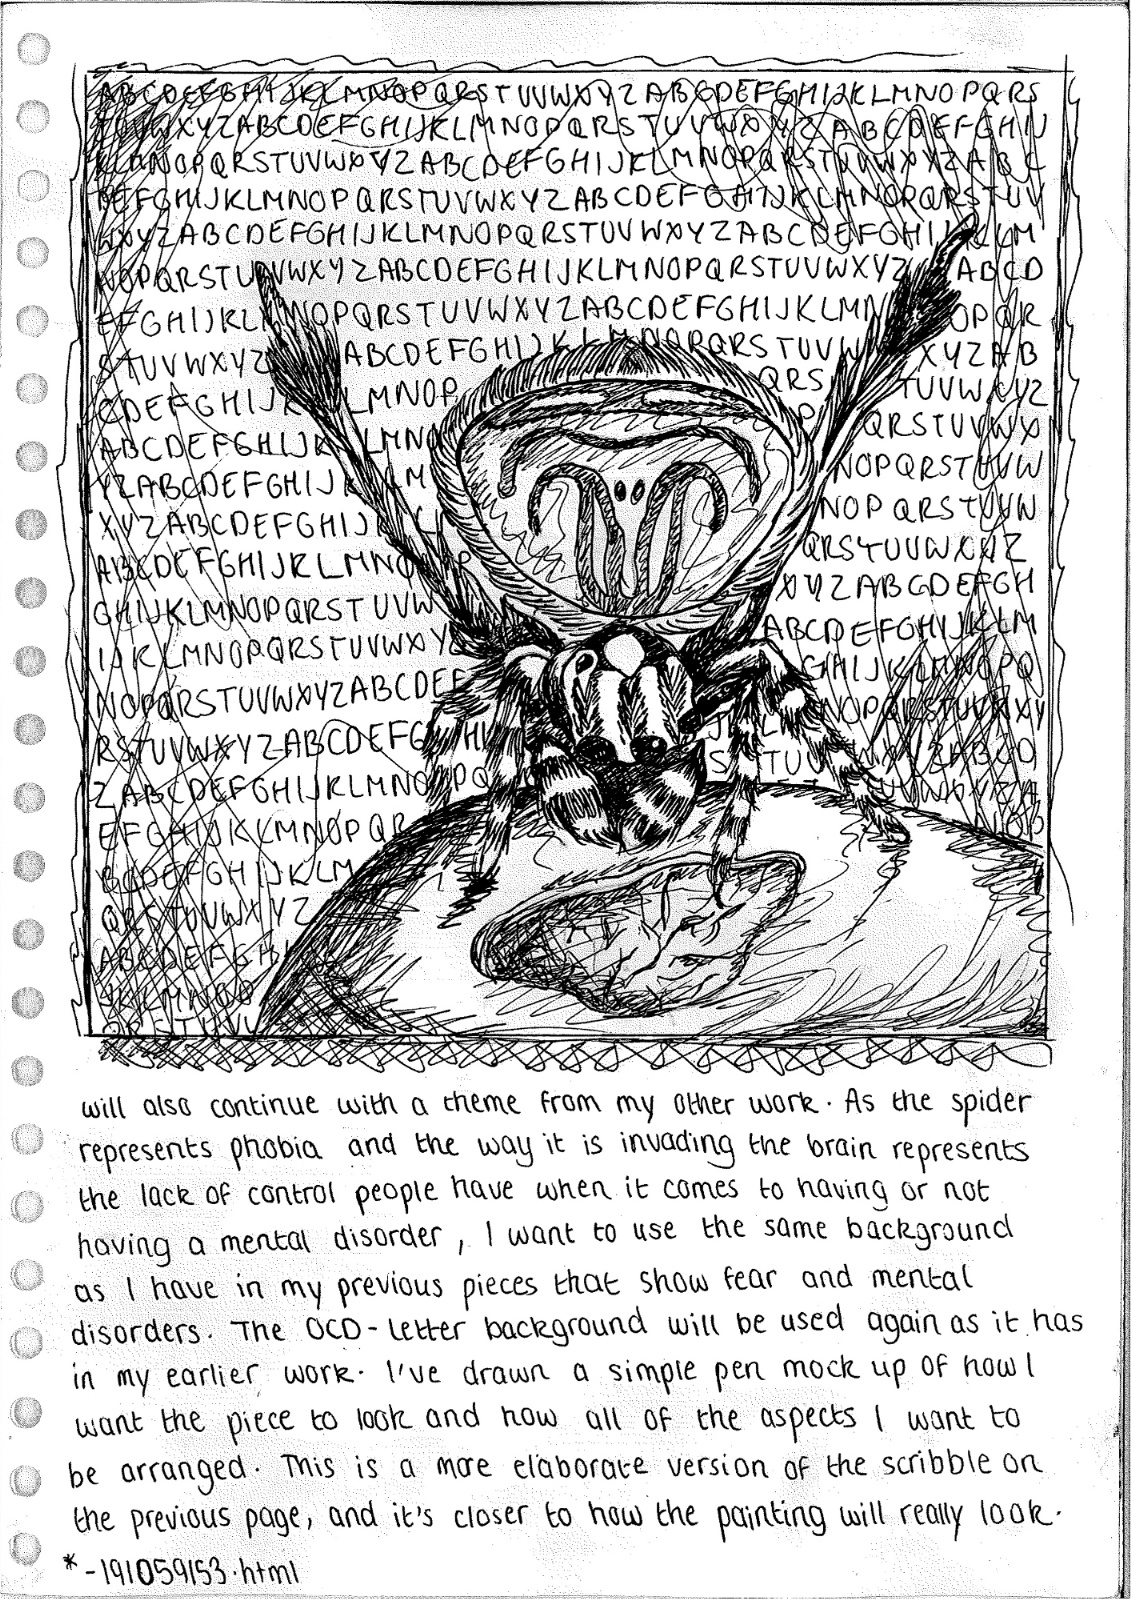 ABCDEFGHIJKLMNOPQRSTUVWXYZABCDEFGHIJKLMNOPQRS
TUVWXYZABCDEFGHIJKLMNOPQRSTUVWXYZABCDEFGHIJ
KLMNOPQRSTUVWXYZABCDEFGHIJKLMNOPQRSTUVWXYZABC
DEFGHIJKLMNOPQRSTUVWXYZABCDEFGHIJKLMNOPQRSTUV
WXYZABCDEFGHIJKLMNOPQRSTUVWXYZABCDEFGHIJKLM
NOPQRSTUVWXYZABCDEFGHIJKLMNOPQRSTUVWXYZ ABCD
EFGHIJKL NOPQRSTUVWXYZABCDEFGHIJKLMN OPQR
STUVWXYZ ABCDEFGHIJKLMNOPQRSTUVW XYZAB
CDEFGHIJK LMNOP QRS TUVWXYZ
ABCDEFGHIJK LMNO QRSTUVWX
YZABCDEFGHIJK LM NOPQRSTUVW
XYZABCDEFGHIJ NOPQRSTUVW
ABCDEFGHIJKLMNO P QRSTUVWXYZ
GHIJKLMNOPQRSTUVW XYZABCDEFGH
IJKLMNOPQRSTUVWXYZ ABCDEFGHIJKLM
NOPQRSTUVWXYZABCDEF GHIJKLMNOPQ
RSTUVWXYZABCDEFG HI JKLM NOPQRSTUVWXY
ZABCDEFGHIJKLMNO PQ STUV WXYZABCD
EFGHIJKLMNOPQR UVWXYZA
BCDEFGHIJKLM NOP
QRSTUVWXYZ
ABCDEFGHI
JKLMNOP
QRSTUVW
will also continue with a theme from my other work. As the spider
represents phobia and the way it is invading the brain represents
the lack of control people have when it comes to having or not
having a mental disorder, I want to use the same background
as I have in my previous pieces that show fear and mental
disorders. The OCD-letter background will be used again as it has
in my earlier work. I've drawn a simple pen mock up of how I
want the piece to look and how all of the aspects I want to
be arranged. This is a more elaborate version of the scribble on
the previous page, and it's closer to how the painting will really look.
*-191059153.html